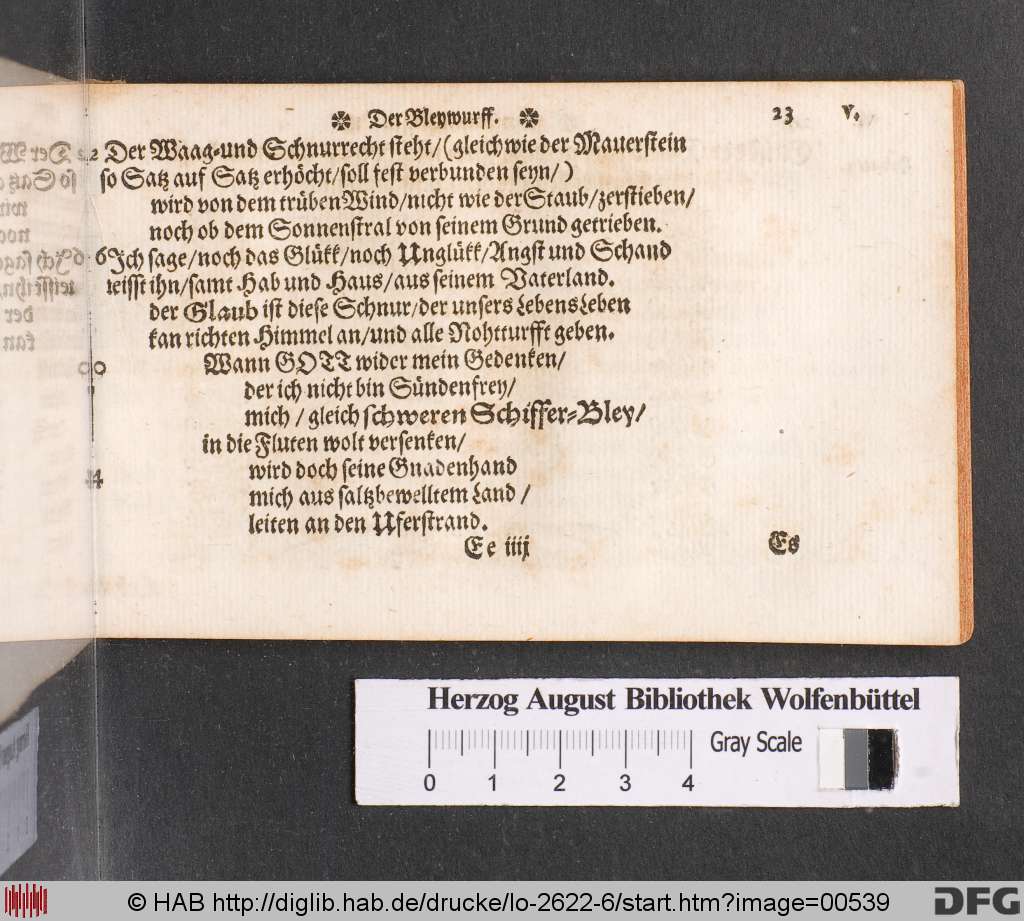 ✼ Der Bleywurff. ✼ 23 V.
Der Waag- und Schnurrecht steht/ (gleichwie der Mauerstein
so Satz auf Satz erhöcht/ soll fest verbunden seyn/)
wird von dem trüben Wind/ nicht wie der Staub/ zerstieben/
noch ob dem Sonnenstral von seinem Grund getrieben.
Ich sage/ noch das Glükk/ noch Unglükk/ Angst und Schand
reisst ihn/ samt Hab und Haus/ aus seinem Vaterland.
der Glaub ist diese Schnur/ der unsers Lebens Leben
kan richten Himmel an/ und alle Nohtturfft geben.
Wann GOTT wider mein Gedenken/
der ich nicht bin Sündenfrey/
mich/ gleich schweren Schiffer-Bley/
in die Fluten wolt versenken/
wird doch seine Gnadenhand
mich aus saltzbewelltem Land/
leiten an den Uferstrand.
Ee iiij Es
Herzog August Bibliothek Wolfenbüttel
0 1 2 3 4 Gray Scale
© HAB http://diglib.hab.de/drucke/lo-2622-6/start.htm?image=00539
DFG